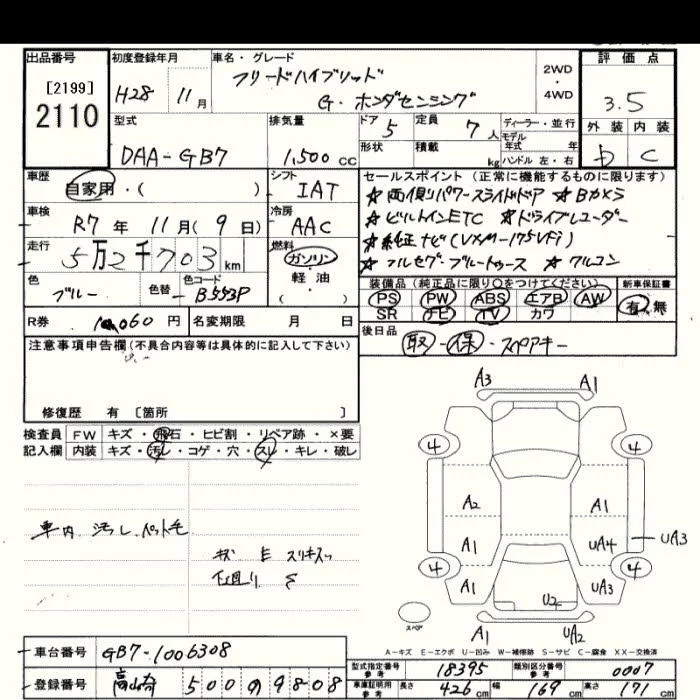 出品番号
[2199]
2110
初度登録年月
H28 11月
車名・グレード
フリードハイブリッド
G・ホンダセンシング
2WD
・
4WD
評価点
3.5
外装 内装
b C
型式
DAA-GB7
排気量
1,500 cc
ドア 5
定員 7人
形状
積載 kg
ディーラー・並行
モデル年式 年
ハンドル 左・右
車歴
自家用・( )
シフト
IAT
車検
R7年 11月(9日)
冷房
AAC
走行
5万2千703km
燃料
ガソリン
軽・油
( )
色
ブルー
色替
色コード
B553P
R券 10,060円
名変期限 月 日
セールスポイント(正常に機能するものに限ります)
☆両側パワースライドドア ☆Bカメラ
☆ビルトインETC ☆ドライブレコーダー
☆純正ナビ(VXM-175VFi)
☆フルセグ・ブルートゥース ☆フルコン
装備品(純正品に限り○をつけてください)
PS PW ABS エアB AW
SR ナビ TV カワ
新車保証書
有・無
後日品
取-保・スペアキー
注意事項申告欄(不具合内容等は具体的に記入して下さい)
修復歴 有〔箇所 〕
検査員記入欄
FW キズ・飛石・ヒビ割・リペア跡・×要
内装 キズ・汚レ・コゲ・穴・スレ・キレ・破レ
車内 汚レ ペット毛
キズ E スリキズ
下廻り
A3 A1
4 4
A2 A1
A1 UA4 UA3
4 4
A1 UA3
U2
スペア
A1 UA2
A-キズ E-エクボ U-凹み W-補修跡 S-サビ C-腐食 XX-交換済
車台番号 GB7-1006308
登録番号 500 の 9808
型式指定番号 参考 18395
類別区分番号 参考 0007
車庫証明用 参考 長さ 426cm 幅 169cm 高さ 171cm